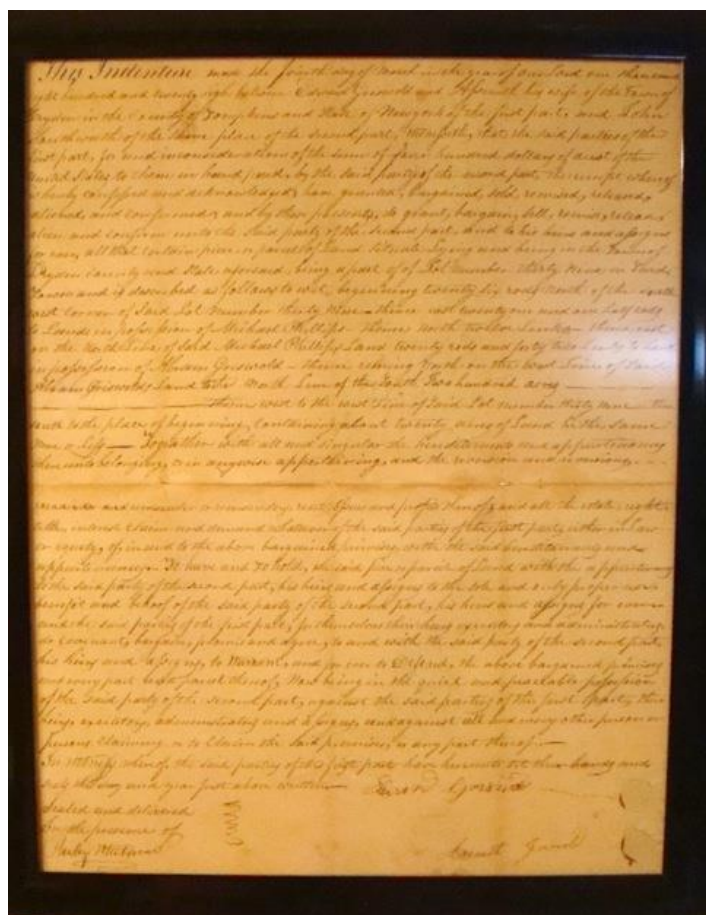 This Indenture made the fourth day of March in the year of our Lord one thousand
eight hundred and twenty between Edward Griswold and his wife of the Town of
Dryden in the County of Tompkins and State of New york of the first part, and John
Southworth of the same place of the second part, Witnesseth, that the said parties of the
first part, for and in consideration of the sum of four hundred dollars of the
United States to them in hand paid by the said party of the second part, the receipt whereof
is hereby confessed and acknowledged, have granted, bargained, sold, remised, released,
aliened, and confirmed, and by these presents, do grant, bargain, sell, remise, release,
alien and confirm unto the said party of the second part, and to his heirs and assigns
for ever, all that certain piece or parcel of Land situate lying and being in the Town of
Dryden County and State aforesaid, being a part of Lot Number thirty Nine in said
Town and is described as follows to wit, beginning twenty six rods North of the south
west corner of said Lot Number thirty Nine thence east twenty one and one half rods
to Lands in possession of Michael Phillips thence North twelve thence east
on the North Line of said Michael Phillips Land twenty rods and forty two to Land
in possession of Abram Griswold thence North on the west Line of said
Abram Griswolds Land to the North Line of the South Two hundred acres
thence west to the west Line of said Lot number thirty Nine thence
south to the place of beginning, Containing about twenty acres of Land be the same
more or less Together with all and singular the hereditaments and appurtenances
thereunto belonging, or in anywise appertaining, and the reversion and reversions,
remainder and remainders, rents, issues and profits thereof, and all the estate, right
title, interest claim and demand whatsoever of the said parties of the first part, either in Law
or equity, of, in and to the above bargained premises, with the said hereditaments and
appurtenances. To have and to hold, the said piece or parcel of Land with the appurtenances
to the said party of the second part, his heirs and assigns to the sole and only proper use
benefit and behoof of the said party of the second part, his heirs and assigns for ever
and the said parties of the first part, for themselves their heirs executors and administrators
do covenant, bargain, promise and agree, to and with the said party of the second part,
his heirs and assigns, to Warrant, and for ever to Defend, the above bargained premises
and every part and parcel thereof, Now being in the quiet and peaceable possession
of the said party of the second part, against the said parties of the first part, their
heirs, executors, administrators and assigns, and against all and every other person or
persons claiming or to claim the said premises, or any part thereof.
In witness whereof, the said parties of the first part have hereunto set their hands and
seals the day and year first above written
Sealed and delivered
In the presence of